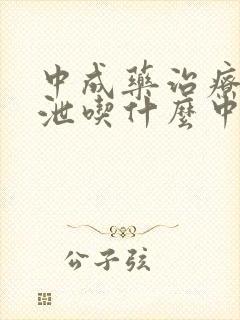 中成藥治療
泄喫什麼中
公子弦